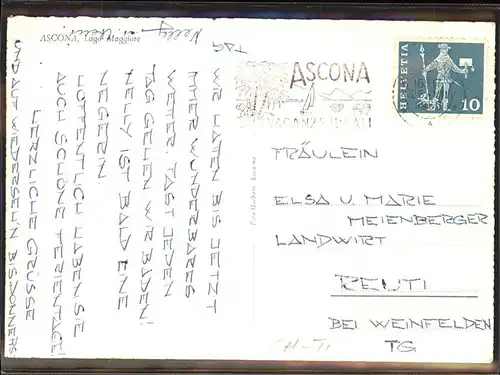 ASCONA, Lago Maggiore
Nelly
WIR HATEN BIS JETZT
HIER WUNDERBARES
WETER FAST JEDEN
TAG GEHEN WIR BADEN!
NELLY IST BALD EINE
NEGERIN.
HOFFENTLICH HABEN SIE
AUCH SCHÖNE FERIENTAGE!
HERZLICHE GRÜSSE
UND AUF WIEDERSEHN BIS DONNERS
TAG
ASCONA
VACANZE IDEALI
HELVETIA
10
FRÄULEIN
ELSA U. MARIE
MEIENBERGER
LANDWIRT
REUTI
BEI WEINFELDEN
TG
CH-TI